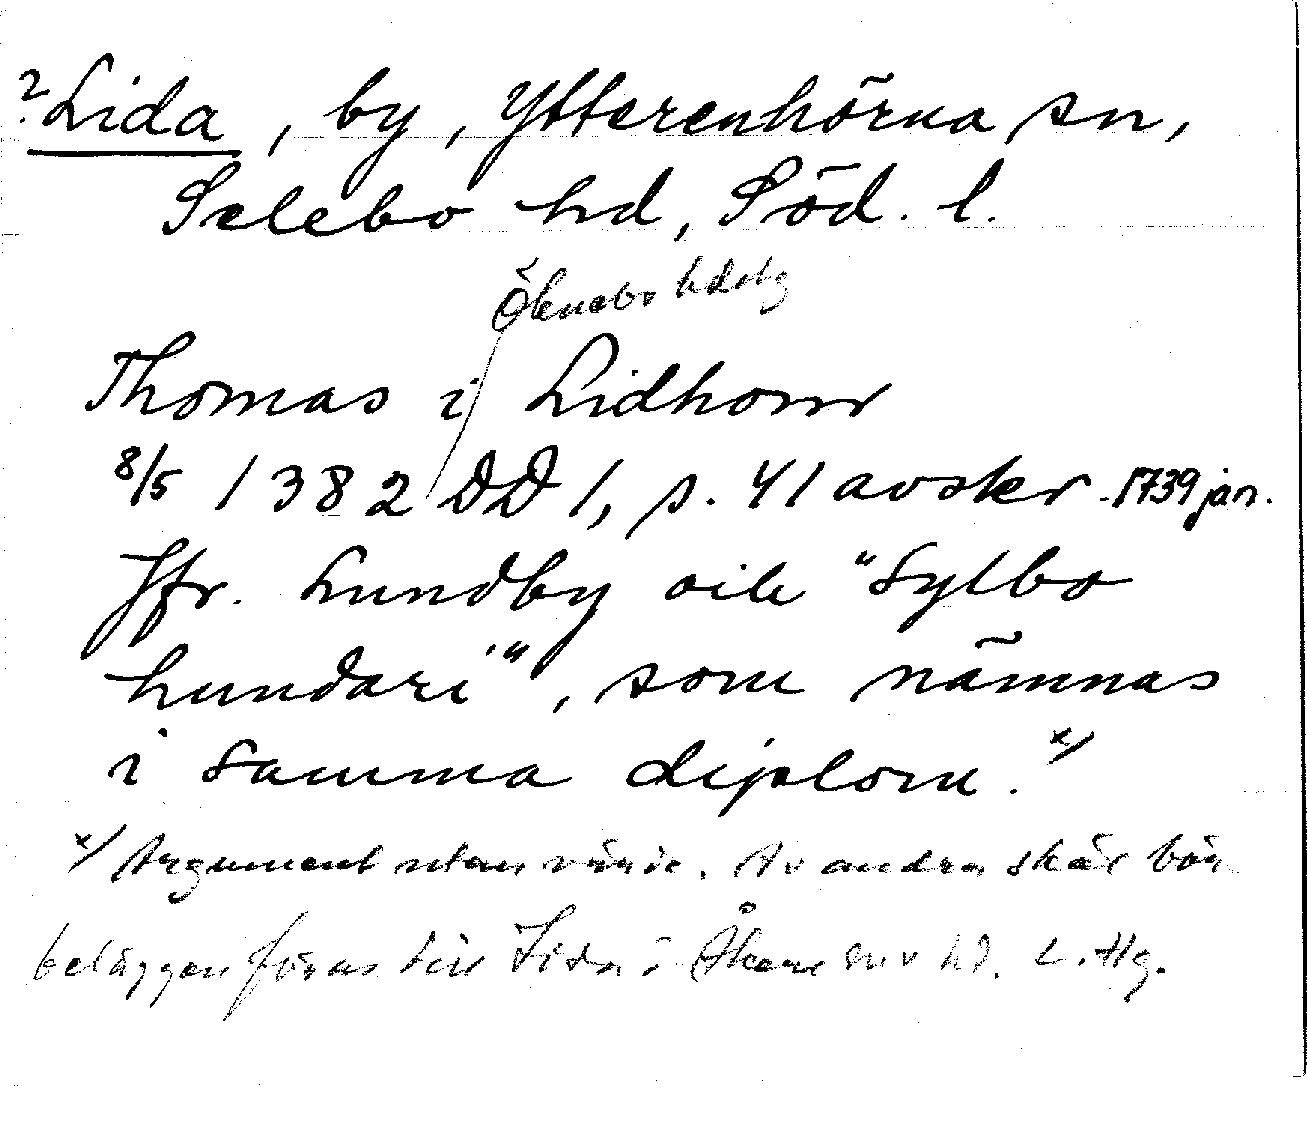 ? Lida, by, Ytterenhörna sn,
Selebo hd, Söd. l.
Öknebo hdsbg
Thomas i Lidhom
8/5 1382 DD 1, s. 41 avskr. 1739 jan.
Jfr. Lundby oik "Sylbo
hundari", som nämnas
i samma diplom. x/
x/ Argument utan värde. Av andra skäl bör
beläggen föras till Lida i Åkers sn o hd. L. Hg.